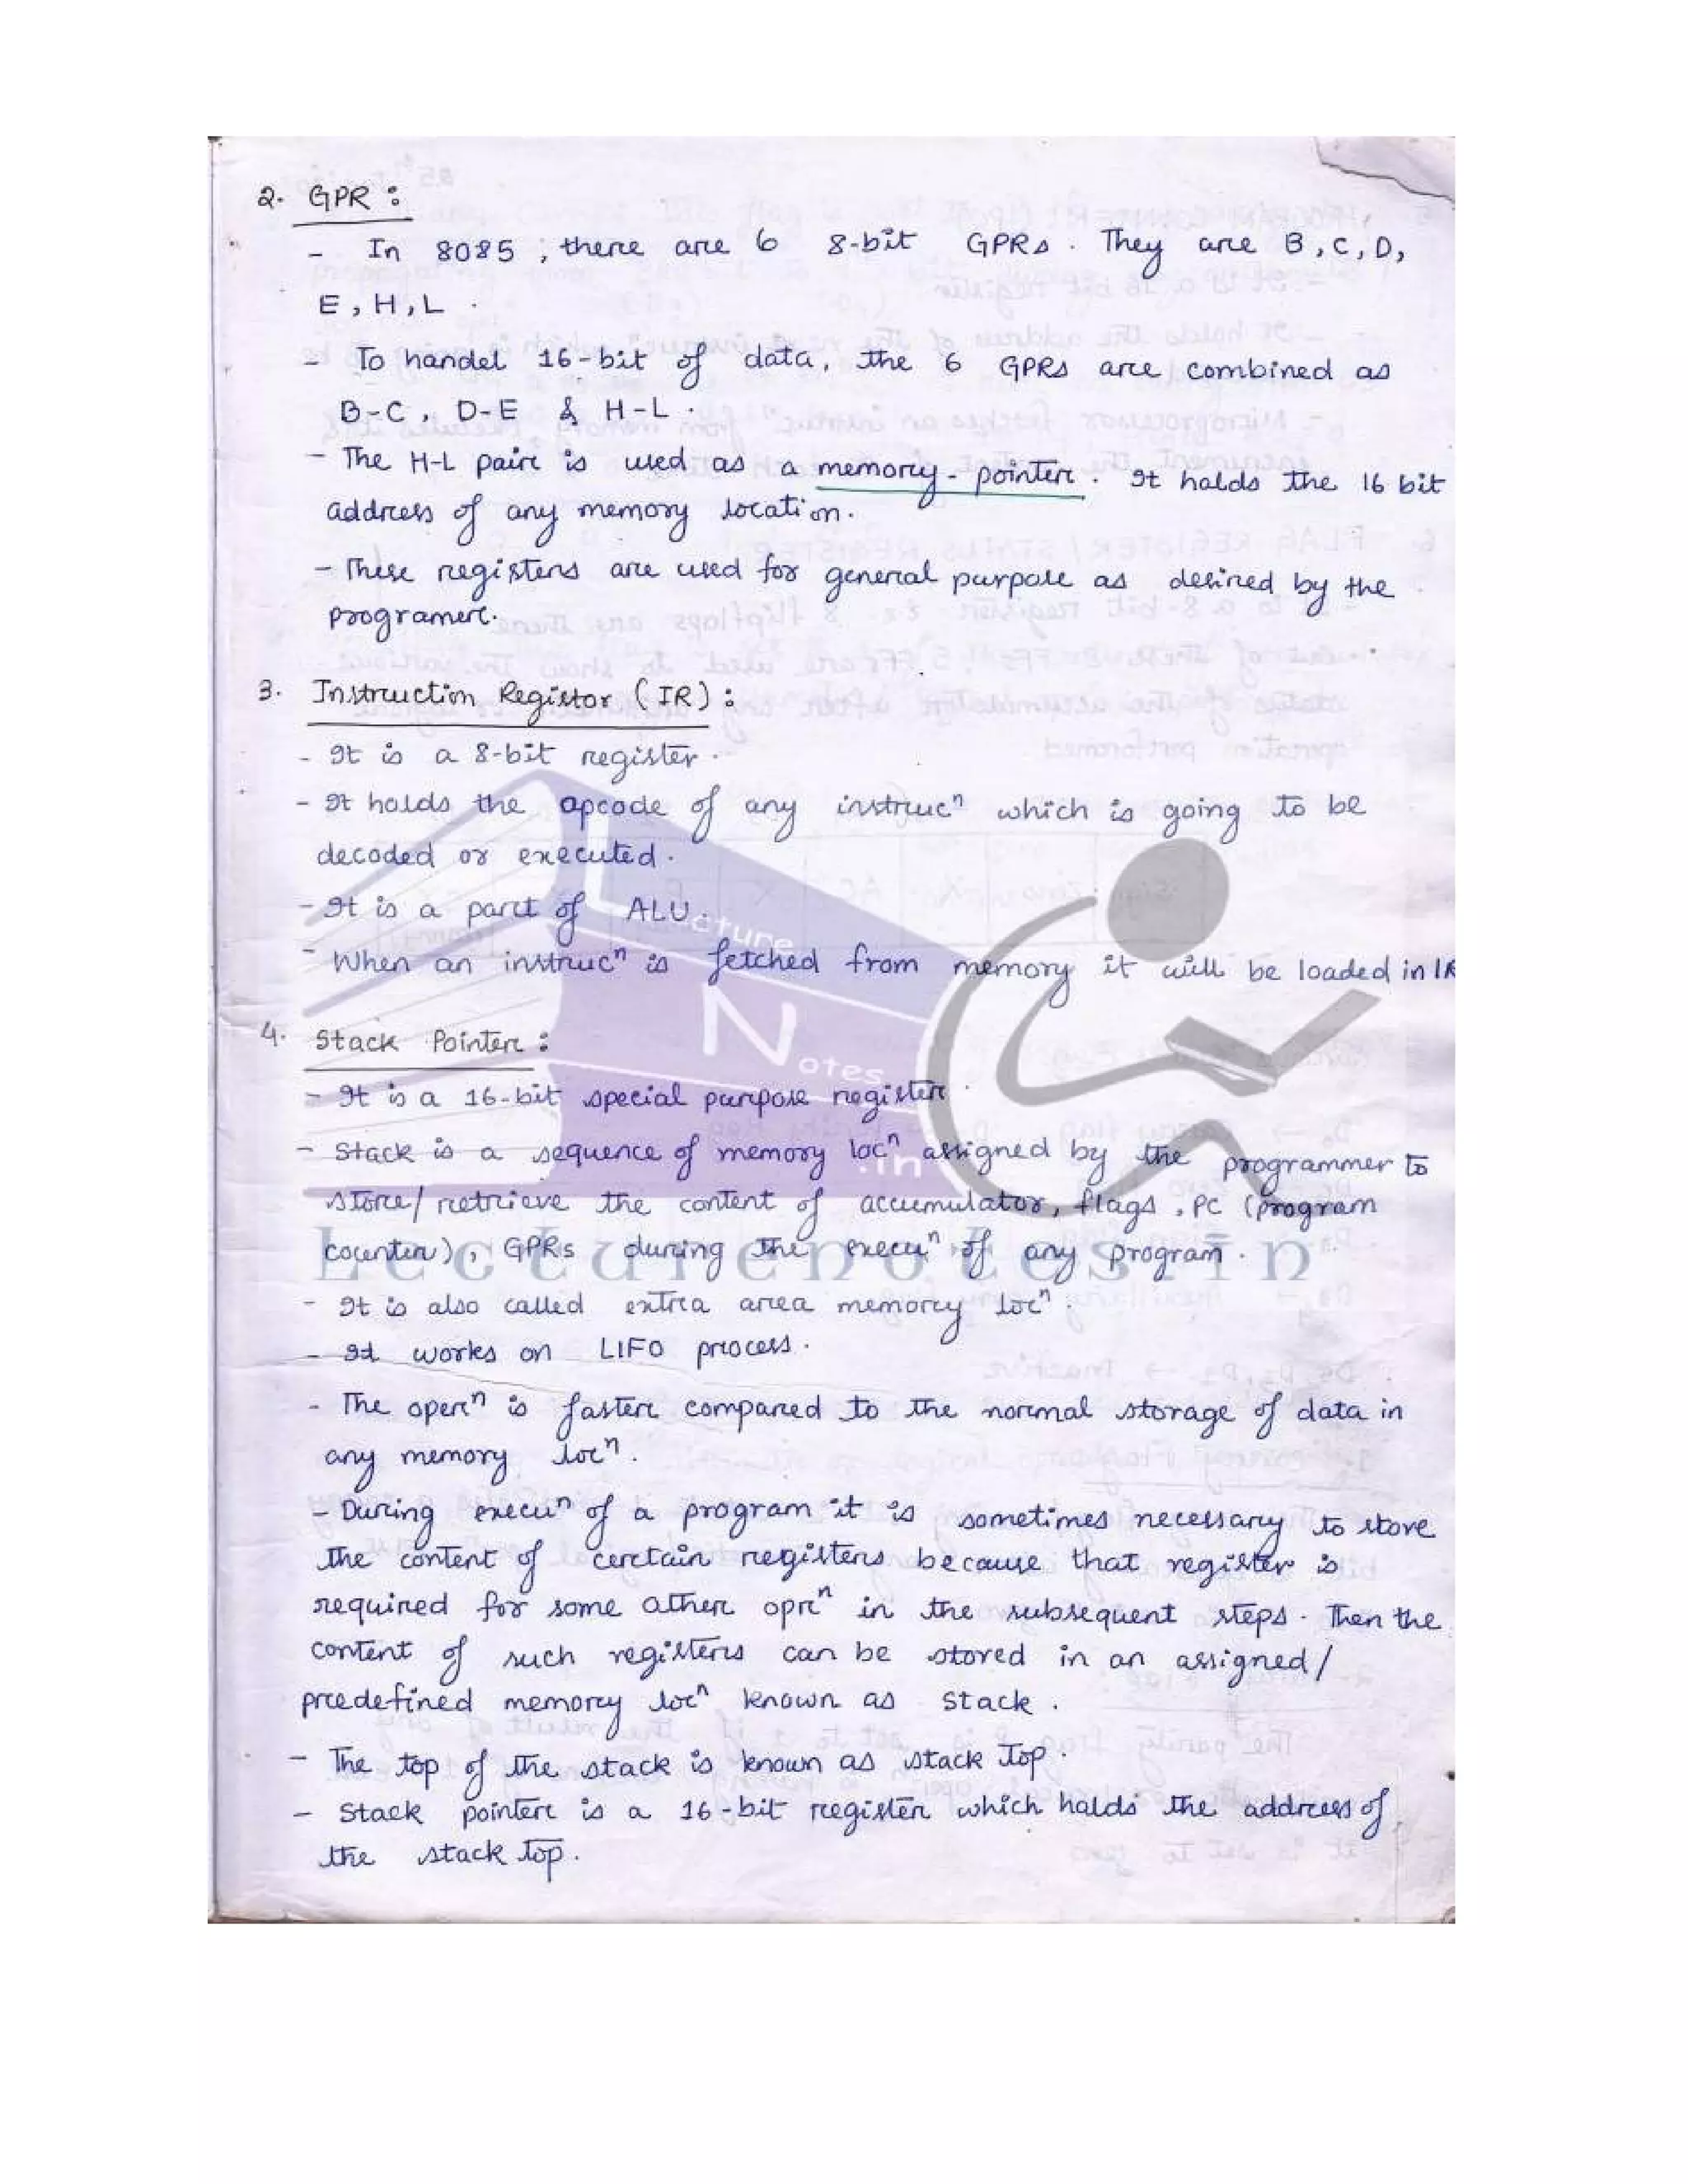 2. GPR :
- In 8085, there are 6 8-bit GPRs. They are B, C, D,
E, H, L.
- To handel 16-bit of data, the 6 GPRs are combined as
B-C, D-E & H-L.
- The H-L pair is used as a memory-pointer. It holds the 16 bit
address of any memory location.
- These registers are used for general purpose as desired by the
programer.
3. Instruction Registor (IR) :
- It is a 8-bit register.
- It holds the opcode of any instrucⁿ which is going to be
decoded or executed.
- It is a part of ALU.
- When an instrucⁿ is fetched from memory it will be loaded in IR
4. Stack Pointer :
- It is a 16-bit special purpose register
- Stack is a sequence of memory locⁿ assigned by the programmer to
store/retrieve the content of accumulator, flags, PC (program
counter), GPRs during the execuⁿ of any program.
- It is also called extra area memory locⁿ.
- It works on LIFO process.
- The operⁿ is faster compared to the normal storage of data in
any memory locⁿ.
- During execuⁿ of a program it is sometimes necessary to store
the content of certain registers because that register is
required for some other oprⁿ in the subsequent steps. Then the
content of such registers can be stored in an assigned/
predefined memory locⁿ known as stack.
- The top of the stack is known as stack top.
- Stack pointer is a 16-bit register which holds the address of
the stack top.
Lecture
Notes
.in
Lecturenotes.in